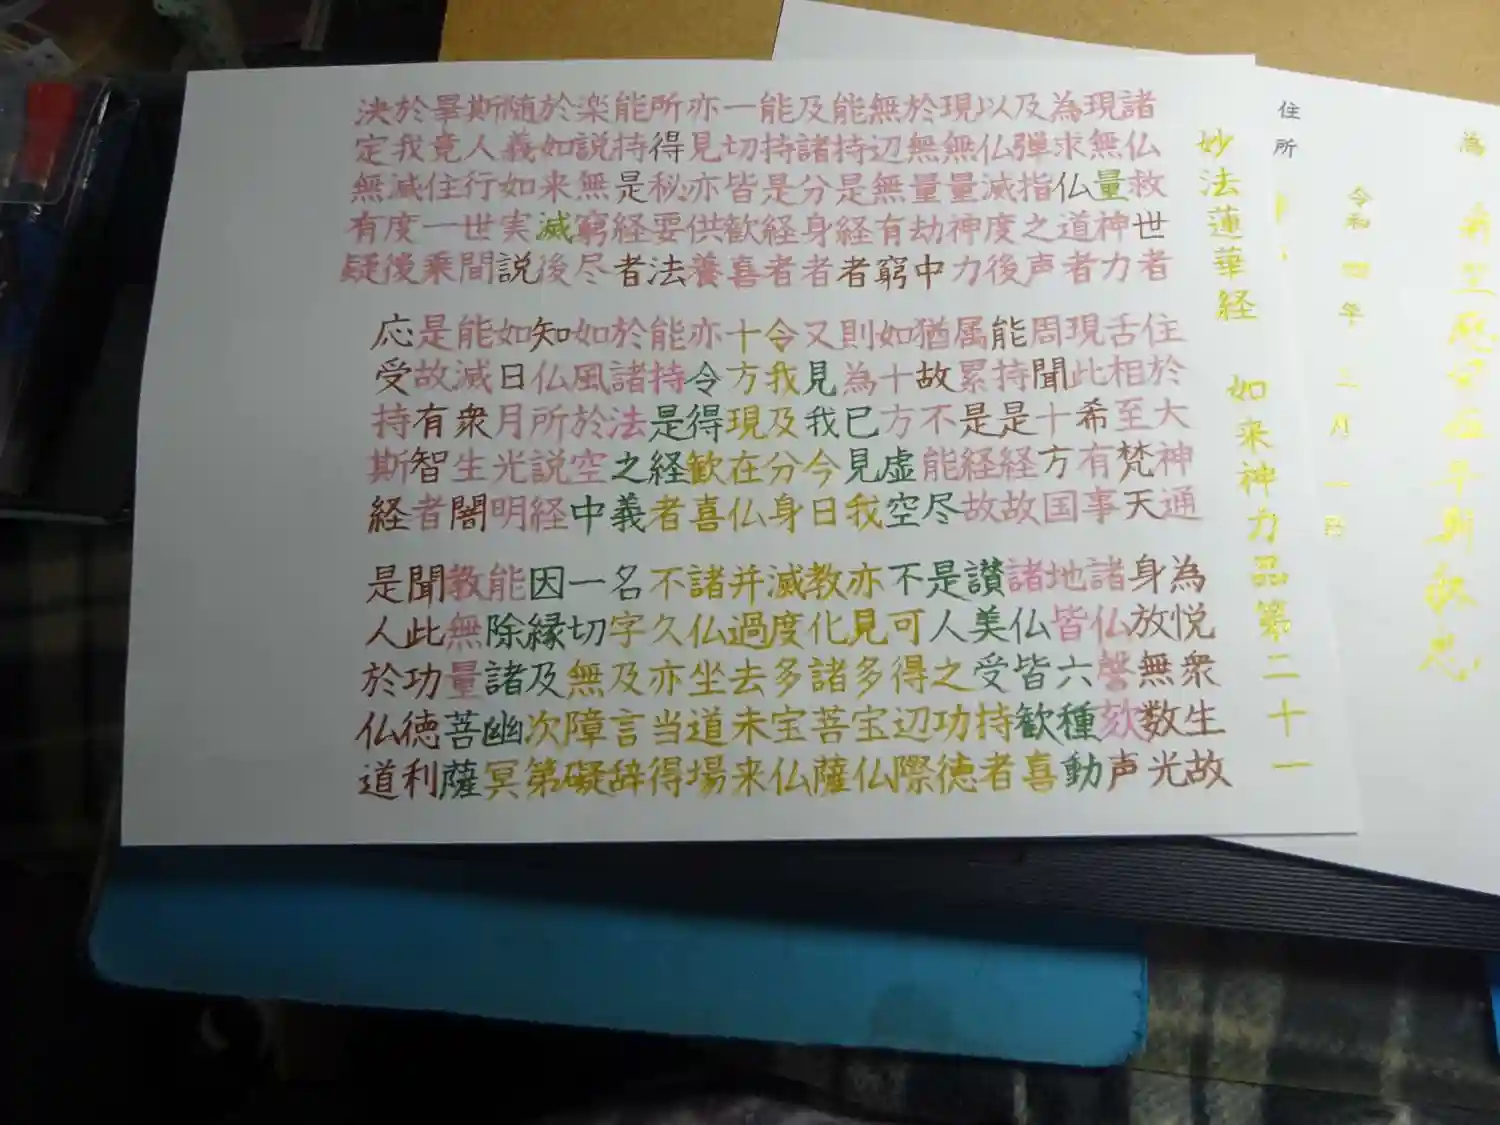 為
令和四年
住所
妙法蓮華経 如来神力品第二十一
諸仏救世者 住於大神通 為悦衆生故
現無量神力 舌相至梵天 身放無数光
為求仏道者 現此希有事 諸仏謦欬声
及弾指之声 周聞十方国 地皆六種動
以仏滅度後 能持是経故 諸仏皆歓喜
現無量神力 属累是経故 讃美受持者
於無量劫中 猶故不能尽 是人之功徳
無辺無有窮 如十方虚空 不可得辺際
能持是経者 則為已見我 亦見多宝仏
及諸分身者 又見我今日 教化諸菩薩
能持是経者 令我及分身 滅度多宝仏
一切皆歓喜 十方現在仏 并過去未来
亦見亦供養 亦令得歓喜 諸仏坐道場
所得秘要法 能持是経者 不久亦当得
能持是経者 於諸法之義 名字及言辞
楽説無窮尽 如風於空中 一切無障礙
於如来滅後 知仏所説経 因縁及次第
随義如実説 如日月光明 能除諸幽冥
斯人行世間 能滅衆生闇 教無量菩薩
畢竟住一乗 是故有智者 聞此功徳利
於我滅度後 応受持斯経 是人於仏道
決定無有疑